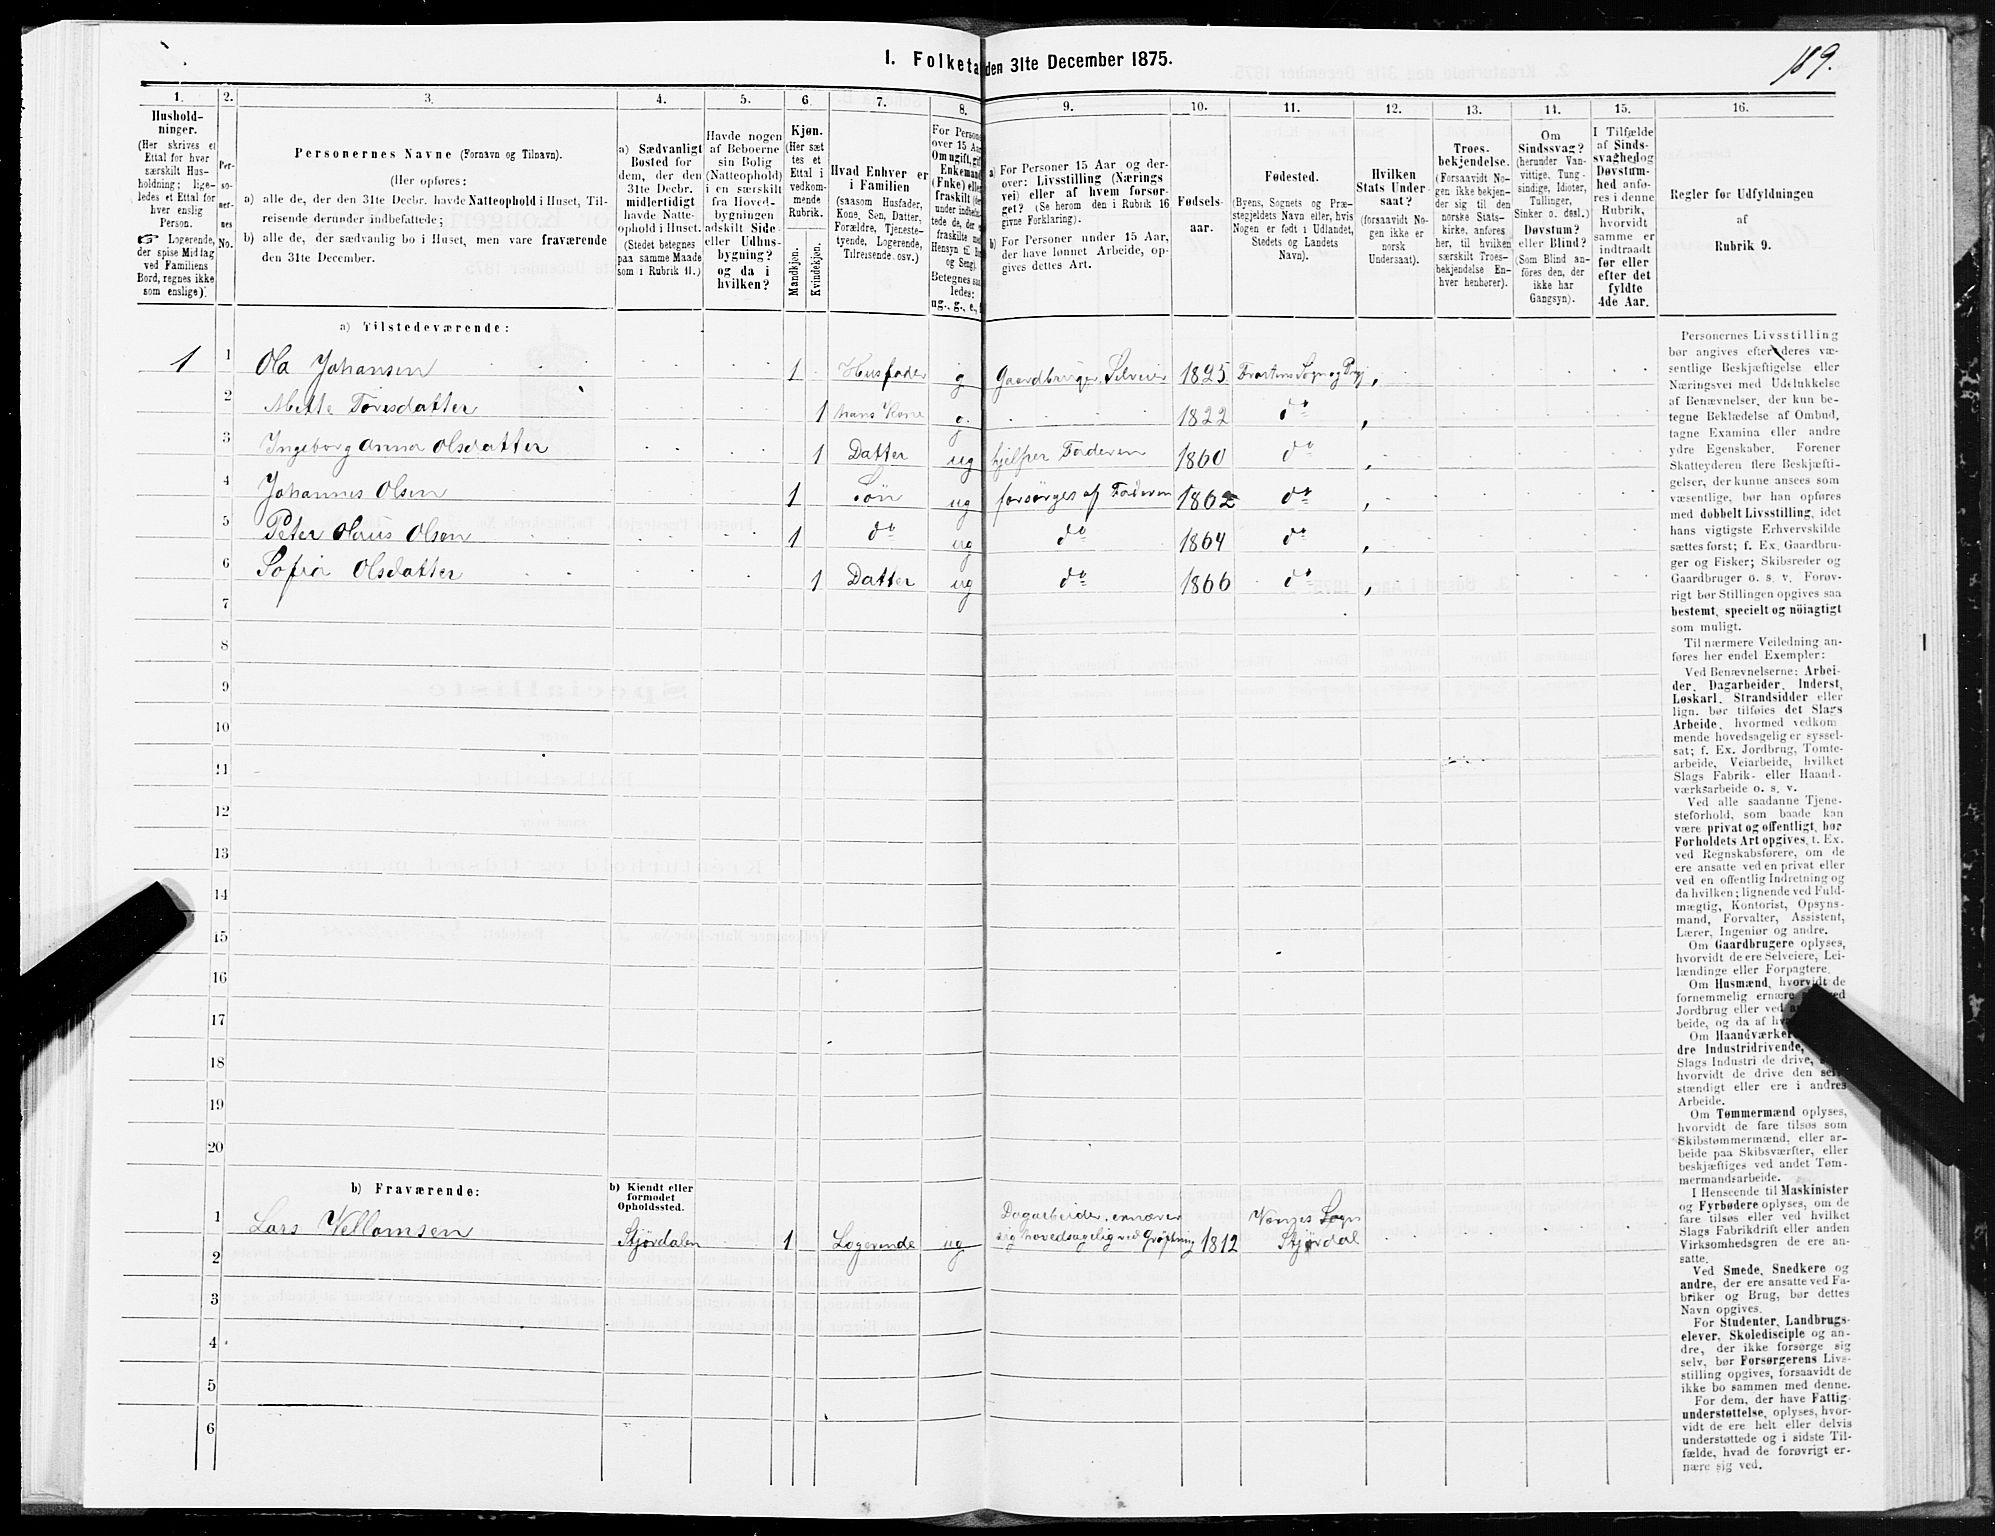 189.
I. Folketa den 31te December 1875.
1. 2. 3. 4. 5. 6. 7. 8. 9. 10. 11. 12. 13. 14. 15. 16.
Hushold-
ninger.
(Her skrives et
Ettal for hver
særskilt Hus-
holdning; lige-
ledes et Ettal for
hver enslig
Person.
☞ Logerende,
der spise Middag
ved Familiens
Bord, regnes ikke
som enslige).
Per-
so-
ner-
nes
No.
Personernes Navne (Fornavn og Tilnavn).
(Her opføres:
a) alle de, der den 31te Decbr. havde Natteophold i Huset, Til-
reisende derunder indbefattede;
b) alle de, der sædvanlig bo i Huset, men vare fraværende
den 31te December.
a) Sædvanligt
Bosted for
dem, der den
31te Decbr.
midlertidigt
havde Natte-
ophold i Huset.
(Stedet betegnes
paa samme Maade
som i Rubrik 11.)
Havde nogen
af Beboerne
sin Bolig
(Natteophold)
i en særskilt
fra Hoved-
bygningen
adskilt Side-
eller Udhus-
bygning?
og da i
hvilken?
Kjøn.
(Her sæt
tes et
Ettal i
vedkom-
mende
Rubrik.
Mandkjøn.
Kvindekjøn.
Hvad Enhver er
i Familien
(saasom Husfader,
Kone, Søn, Datter,
Forældre, Tjeneste-
tyende, Logerende,
Tilreisende osv.)
For Persone
over 15 Aar
Om ugift, gift
Enkemand
(Enke) elle
fraskilt
Betegnes saa
ledes:
ug., g., e.,
a) For Personer 15 Aar og der-
over: Livsstilling (Nærings
vei) eller af hvem forsør-
get? (Se herom den i Rubrik 16
givne Forklaring).
b) For Personer under 15 Aar,
der have lønnet Arbeide, op-
gives dettes Art.
Fødsels-
aar.
Fødested.
(Byens, Sognets og Præ-
stegjeldets Navn eller, hvis
Nogen er født i Udlandet,
Stedets og Landets
Navn).
Hvilken
Stats Under-
saat?
(forsaavidt No-
gen ikke er
norsk
Undersaat).
Troes-
bekjendelse.
(Forsaavidt No-
gen ikke bekjen-
der sig til den
norske Stats-
kirke, anføres
her, til hvilken
særskilt Troes-
bekjendelse En-
hver henhører).
Om
Sindssvag?
(herunder Van-
vittige, Tung-
sindige, Idioter,
Tullinger,
Sinker o. desl.)
Døvstum?
eller Blind?
(Som Blind an-
føres den, der
ikke har
Gangsyn).
I Tilfælde
af Sinds-
svaghed og
Døvstum-
hed anfø-
res i denne
Rubrik,
hvorvidt
samme er
indtraadt
før eller
efter det
fyldte
4de Aar.
Regler for Udfyldningen
af
Rubrik 9.
a) Tilstedeværende:
1 1 Ola Johansen 1 Husfader g Gaardbruger, Selveier 1825 Frostens Sogn og Prgj
2 Mette Toresdatter 1 hans Kone g. 1822 do
3 Ingeborg Anna Olsdatter 1 Datter ug hjelper Faderen 1860 do
4 Johannes Olsen 1 Søn ug forsørges af Faderen 1862 do
5 Peter Olaus Olsen 1 do ug do 1864 do
6 Sofia Olsdatter 1 Datter ug do 1866 do
7
8
9
10
11
12
13
14
15
16
17
18
19
20
b) Fraværende:
b) Kjendt eller
formodet
Opholdssted.
1 Lars Vellamsen Stjørdalen 1 Logerende ug Dagarbeider, ernærer
sig hovedsagelig ved Grøftning 1812 Værnes Sogn
Stjørdal
2
3
4
5
6
Personernes Livsstilling
bør angives efter deres væ-
sentlige Beskjæftigelse eller
Næringsvei med Udelukkelse
af Benævnelser, der kun be-
tegne Beklædelse af Ombud,
tagne Examina eller andre
ydre Egenskaber. Forener
Skatteyderen flere Beskjæfti-
gelser, der kunne ansees som
væsentlige, bør han opføres
med dobbelt Livsstilling, idet
hans vigtigste Erhvervskilde
sættes først; f. Ex. Gaardbru-
ger og Fisker; Skibsreder og
Gaardbruger o. s. v. Forøv-
rigt bør Stillingen opgives saa
bestemt, specielt og nöiagtigt
som muligt.
Til nærmere Veiledning an-
føres her endel Exempler:
Ved Benævnelserne: Arbei-
der, Dagarbeider, Inderst,
Løskarl, Strandsidder eller
lign. bør tilføies det Slags
Arbeide, hvormed vedkom
mende hovedsagelig er syssel-
sat; f. Ex. Jordbrug, Tomte-
arbeide, Veiarbeide, hvilket
Slags Fabrik- eller Haand-
værksarbeide o. s. v.
Ved alle saadanne Tjene-
steforhold, som baade kan
være privat og offentligt, bør
Forholdets Art opgives, t. Ex.
ved Regnskabsførere, om de
ere ansatte ved en privat eller
ved en offentlig Indretning og
da hvilken; lignende ved Fuld-
mægtig, Kontorist, Opsyns-
mand, Forvalter, Assistent,
Lærer, Ingeniør og andre.
Om Gaardbrugere oplyses,
hvorvidt de ere Selveiere, Lei-
lændinge eller Forpagtere.
Om Husmænd, hvorvidt de
fornemmelig ernære ved
Jordbrug eller ved
beide, og da af
Om Haandværker
dre Industridrivende,
Slags Industri de drive,
hvorvidt de drive den
stændigt eller ere i andres
Arbeide.
Om Tømmermænd oplyses,
hvorvidt de fare tilsøs som
Skibstømmermænd, eller ar-
beide paa Skibsværfter, eller
beskjæftiges ved andet Tøm-
mermandsarbeide.
I Henseende til Maskinister
og Fyrbødere oplyses, om de
fare tilsøs eller ved hvilket
Slags Fabrikdrift eller anden
Virksomhedsgren de ere an-
satte.
Ved Smede, Snedkere og
andre, der ere ansatte ved Fa-
briker og Brug, bør dettes
Navn opgives.
For Studenter, Landbrugs-
elever, Skoledisciple og an-
dre, der ikke forsørge sig
selv, bør Forsørgerens Livs-
stilling opgives, forsaavidt de
ikke bo sammen med denne.
For dem, der have Fattig-
understøttelse, oplyses, hvor-
vidt de ere helt eller delvis
understøttede og i sidste Til-
fælde, hvad de forøvrigt er-
nære sig ved.